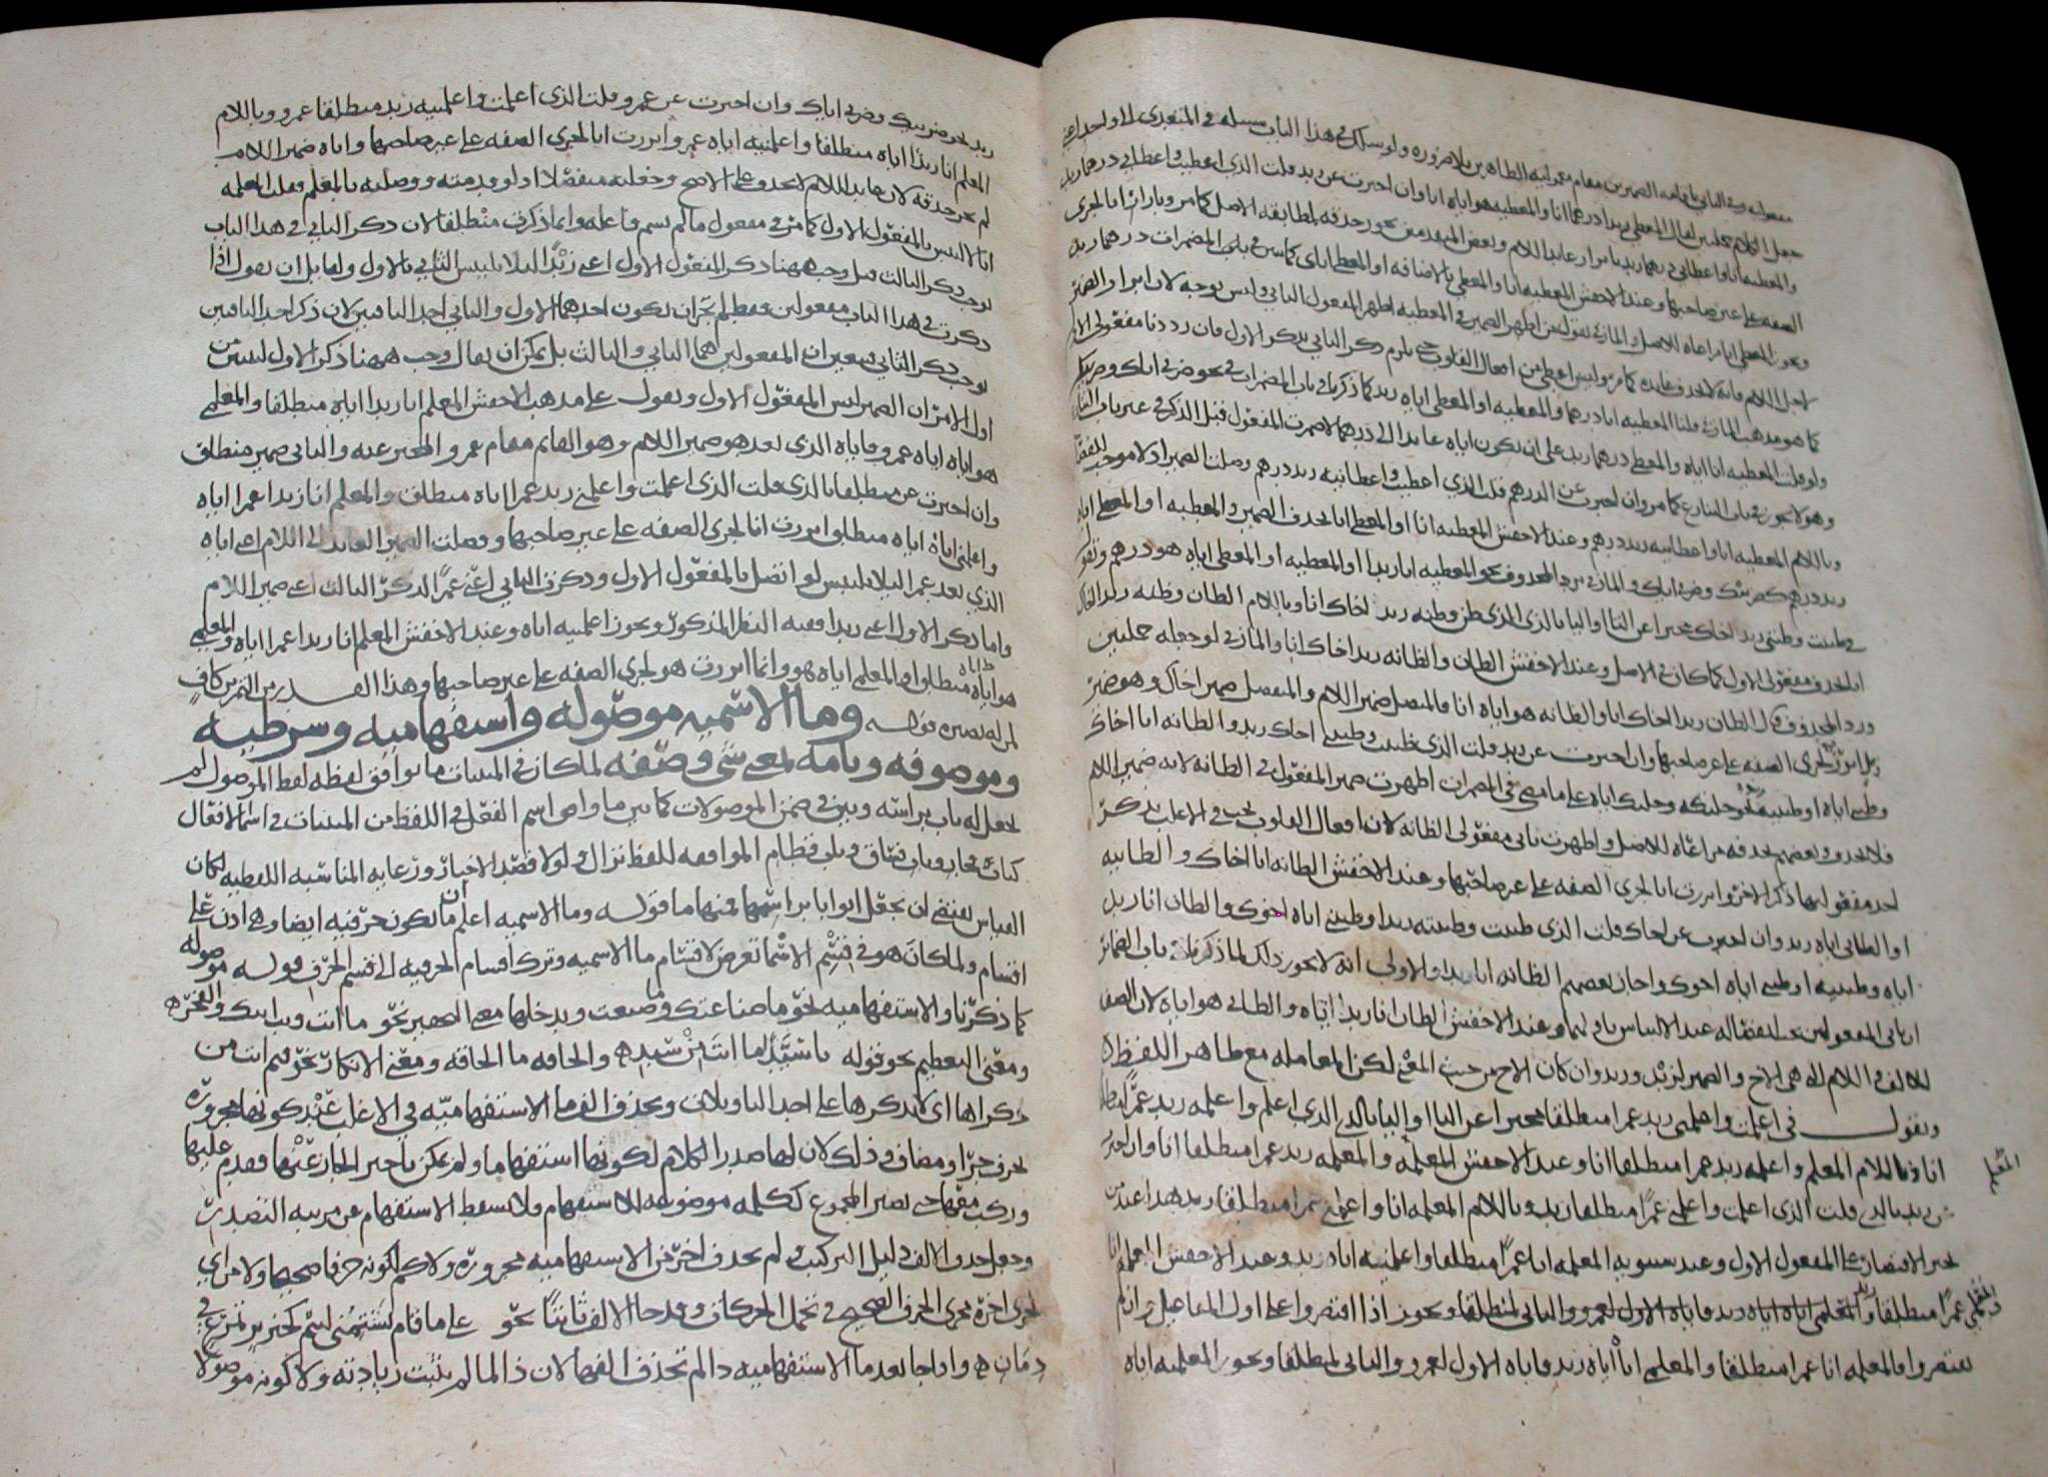 مفعوليه وفي الثاني باقامة الضميرين مقام مفعوليه الظاهرين بلا ضرورة ولو سلك في هذا الباب سبيله في المتعدى الى واحد اعني
جعل الكلام جملتين لقال المعطي زيدا درهما انا والمعطيه هو اياه انا وان اخبرت عن زيد قلت الذي اعطيت واعطاني درهما زيد
والمعطيه انا واعطاني درهما زيد بابراز عايد اللام وبعض المتقدمين يجوز حذفه لمطابقة الاصل كما مر وبابراز انا لجري
الصفة على غير صاحبها وعند الاخفش المعطيه انا والمعطي بالاضافة او المعطي اياي كما بين في باب المضمرات درهما زيد
كما هو مذهب المازني قلنا المعطيه انا درهما والمعطيه او المعطي اياه زيد كما ذكرنا في باب المضمرات في نحو ضربي اياك وضربيك
ولو قلت المعطيه انا اياه والمعطي درهما زيد على ان يكون اياه عايدا الى درهما لاضمرت المفعول قبل الذكر في غير باب التنازع
وهو لا يجوز في باب التنازع كما مر وان اخبرت عن الدرهم قلت الذي اعطيت واعطانيه زيد درهم وصلت الضمير اذ لا موجب للفصل
وباللام المعطيه انا واعطانيه زيد درهم وعند الاخفش المعطيه انا او المعطي انا بحذف الضمير والمعطيه او المعطي اياه
زيد درهم كضربيك وضربي اياك والمازني يرد المحذوف نحو المعطيه انا زيدا والمعطيه او المعطي اياه هو درهم وتقول
في ظننت وظنني زيد اخاك مخبرا عن التا او اليا بالذي الذي ظن وظنه زيد اخاك انا وباللام الظان وظنه زيد اخاك
انا بحذف مفعولي الاول كما كان في الاصل وعند الاخفش الظان والظانه زيد اخاك انا والمازني لو جعله جملتين
ورد المحذوف قال الظان زيدا اخاك انا والظانه هو اياه انا فالمتصل ضمير اللام والمنفصل ضمير اخاك وهو ضمير
زيد ابرز لجري الصفة على غير صاحبها وان اخبرت عن زيد قلت الذي ظننت وظنني اخاك زيد والظانه انا اخاك
وظنني اياه او ظننيه نحو خلتكه وخلتك اياه على ما مضى في المضمرات اظهرت ضمير المفعول في الظانه لانه ضمير اللام
فلا يحذف وبعضهم يحذفه مراعاة للاصل واظهرت ثاني مفعولي الظانه لان افعال القلوب يجب في الاغلب بذكر
احد مفعوليها ذكر الاخر وابرزت انا لجري الصفة على غير صاحبها وعند الاخفش الظانه انا اخاك والظانيه
او الظاني اياه زيد وان اخبرت عن اخاك قلت الذي ظننت وظننته زيدا وظنني اياه اخوك والظان انا زيدا
اياه وظننيه او ظنني اياه اخوك واجاز بعضهم الظانه انا زيدا والاولى انه لا يجوز ذلك لما ذكرنا في باب الضمائر
ان ثاني المفعولين يجب انفصاله عند الالتباس باولهما وعند الاخفش الظان انا زيدا اياه والظاني هو اياه لان الصفة
للالف واللام التي هي الاخ والضمير لزيد وزيد وان كان الاخ من حيث المعنى لكن المعامله مع ظاهر اللفظ
وتقول في اعلمت واعلمني زيد عمرا منطلقا مخبرا عن التا او اليا بالذي الذي اعلم واعلمه زيد عمرا منطلقا
انا وباللام المعلم واعلمه زيد عمرا منطلقا انا وعند الاخفش المعلمه والمعلمه زيد عمرا منطلقا انا وان اخبرت
عن زيد بالذي قلت الذي اعلمت واعلمني عمرا منطلقا زيد وباللام المعلمه انا واعلمني عمرا منطلقا زيد هذا عند من
يجيز الاقتصار على المفعول الاول وعند سيبويه المعلمه انا عمرا منطلقا واعلمنيه اياه زيد وعند الاخفش المعلم انا
عمرا منطلقا والمعلمي اياه اياه زيد فاياه الاول لعمرو والثاني لمنطلقا ويجوز اذا اقتصروا على اول المفاعيل وان لم
يقتصروا فالمعلمه انا عمرا منطلقا والمعلمي اياه اياه زيد فاياه الاول لعمرو والثاني لمنطلقا ويجوز المعلميه اياه
زيد نحو ضربيك وضربي اياك وان اخبرت عن عمرو قلت الذي اعلمت واعلمنيه زيد منطلقا عمرو وباللام
المعلم انا زيدا اياه منطلقا واعلمنيه اياه عمرو ابرزت انا لجري الصفة على غير صاحبها واياه ضمير اللام
لم يجز حذفه لان عايد اللام لا يحذف على الاصح وجعلته منفصلا اذ لو قدمته ووصلته بالمعلم فقلت المعلمه
انا لالتبس بالمفعول الاول كما مر في مفعول ما لم يسم فاعله وانما ذكرت منطلقا لان ذكر الثاني في هذا الباب
يوجب ذكر الثالث قيل وجب ههنا ذكر المفعول الاول اعني زيدا لئلا يلتبس الثاني بالاول ولقايل ان يقول اذا
ذكرت في هذا الباب مفعولين فقط لم يجز ان يكون احدهما الاول والثاني احد الباقيين لان ذكر احد الباقيين
يوجب ذكر الثاني فتعين ان المفعولين هما الثاني والثالث بل يمكن ان يقال وجب ههنا ذكر الاول ليتبين من
اول الامر ان الضمير ليس المفعول الاول وتقول على مذهب الاخفش المعلم انا زيدا اياه منطلقا والمعلمي
هو اياه اياه عمرو فاياه الذي بعد هو ضمير اللام وهو القايم مقام عمرو المخبر عنه والثاني ضمير منطلق
وان اخبرت عن منطلقا بالذي قلت الذي اعلمت واعلمني زيد عمرا اياه منطلق والمعلم انا زيدا عمرا اياه
واعلمني اياه اياه منطلق ابرزت انا لجري الصفة على غير صاحبها وفصلت الضمير العايد الى اللام اعني اياه
الذي بعد عمرا لئلا يلتبس لو اتصل بالمفعول الاول وذكرت الثاني اعني عمرا لذكر الثالث اعني ضمير اللام
واما ذكر الاول اعني زيدا ففيه النظر المذكور ويجوز اعلمنيه اياه وعند الاخفش المعلم انا زيدا عمرا اياه والمعلمي
هو اياه اياه منطلق او المعلمي اياه هو وانما ابرزت هو لجري الصفة على غير صاحبها وهذا القدر من التمرين كاف
لمن له بصيرة قوله وما الاسمية موصولة واستفهامية وشرطية
وموصوفة وتامة بمعنى شي وصفة لما كان في المبنيات ما يوافق لفظه لفظ الموصول لم
يجعل له باب براسه وبين في ضمن الموصولات كما بين ما وافق اسم الفعل في اللفظ من المبنيات في اسما الافعال
كباب فجار وباب فساق وباب قطام الموافقة للفظ نزال ولولا قصد الاختصار ورعاية المناسبة اللفظية لكان
القياس يقتضي ان يجعل ابوابا براسها فمنها ما قوله وما الاسمية اعلم ان ما تكون حرفية ايضا وهي اذن على
اقسام ولما كان هو في قسم الاسما تعرض لاقسام ما الاسمية وترك اقسام الحرفية الى قسم الحرف قوله موصولة
كما ذكرنا والاستفهامية نحو ما صناعتك وما صنعت ويدخلها معنى التحقير نحو ما انت ويب ابيك والفخره
ومعنى التعظيم نحو قوله يا سيدا ما انت من سيد والحاقة ما الحاقة ومعنى الانكار نحو فيم انت من
ذكراها اي لا تذكرها على احد التاويلات وتحذف الف ما الاستفهامية في الاغلب عند كونها مجرورة
بحرف جر او مضاف وذلك لان لها صدر الكلام لكونها استفهاما ولم يمكن تاخير الجار عنها فقدم عليها
وركب معها حتى يصير المجموع ككلمة موضوعة للاستفهام فلا يسقط الاستفهام عن مرتبة التصدر
وجعل حذف الالف دليل التركيب ولم يحذف اخر من الاستفهامية مجرورة ولا كم لكونه حرفا صحيحا ولا من اي
لجري اخره مجرى الحرف الصحيح في تحمل الحركات وقد جا الالف ثابتا نحو على ما قام يشتمني لئيم كخنزير تمرغ في
دمان واذا جا بعد ما الاستفهامية ذا لم تحذف الفها لان ذا لما لم يثبت زيادته ولا كونه موصولا